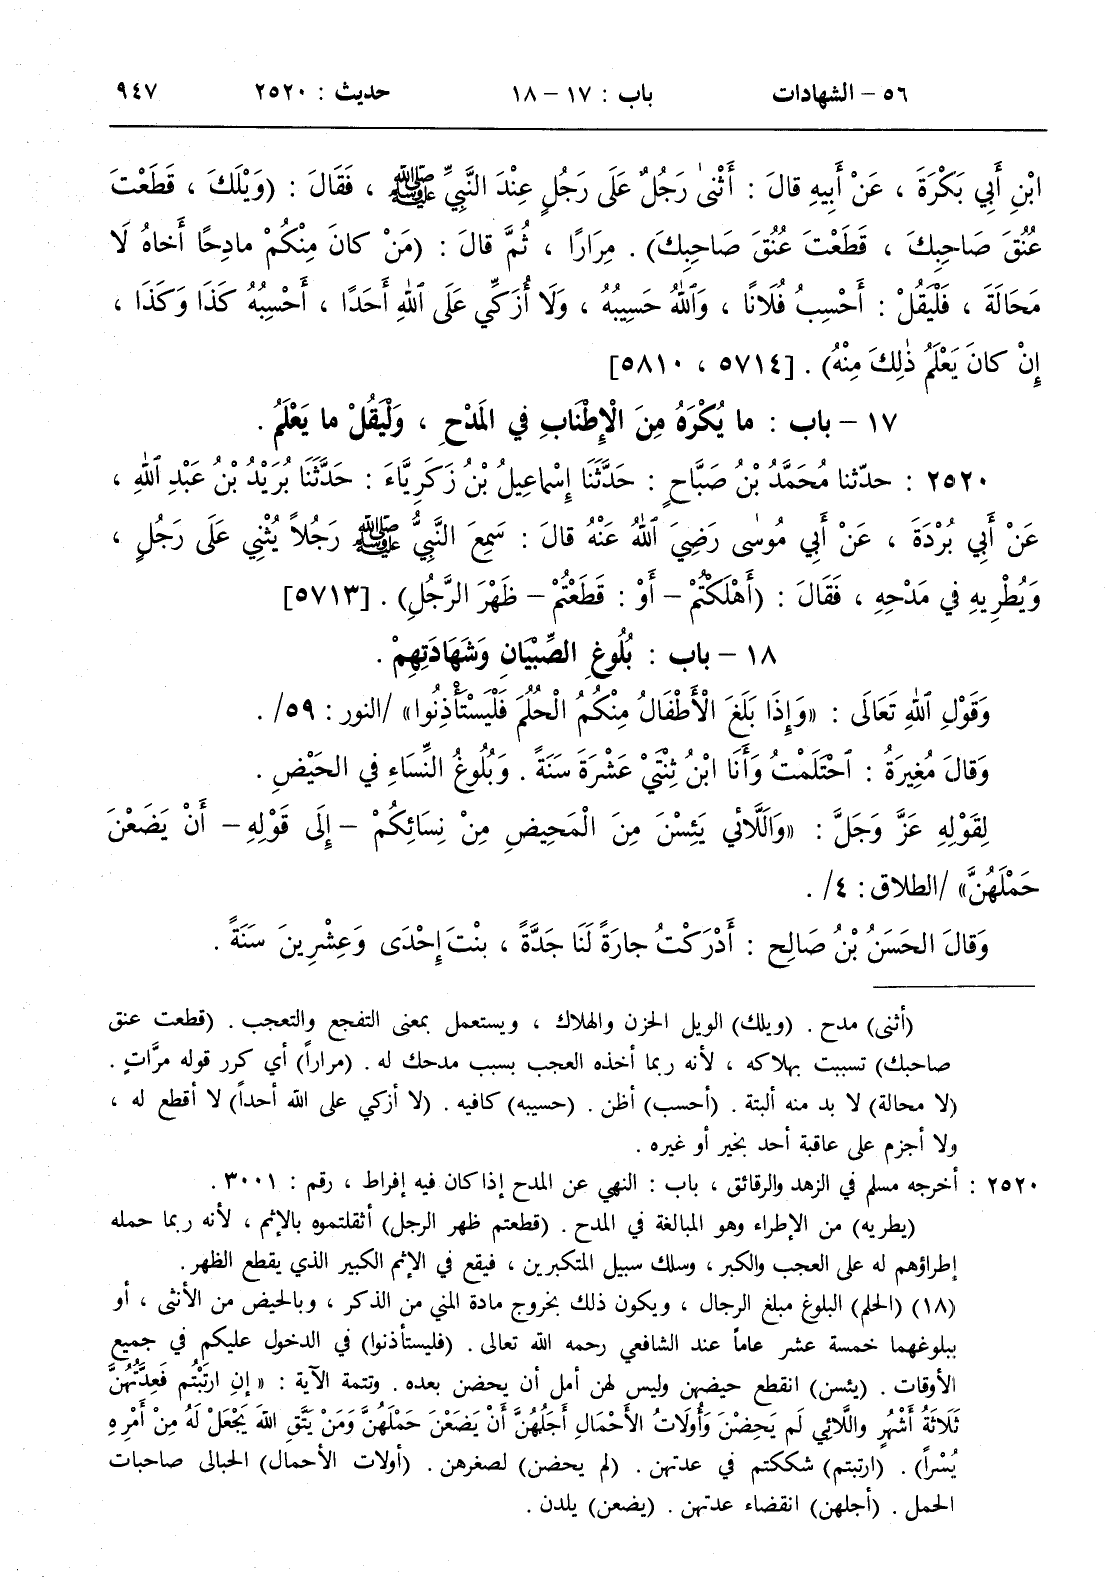 ٥٦ – الشهادات باب : ١٧ – ١٨ حديث : ٢٥٢٠ ٩٤٧
ابْنِ أَبِي بَكْرَةَ ، عَنْ أَبِيهِ قالَ : أَثْنىٰ رَجُلٌ عَلَى رَجُلٍ عِنْدَ النَّبِيِّ ﷺ ، فَقَالَ : (وَيْلَكَ ، قَطَعْتَ
عُنُقَ صَاحِبِكَ ، قَطَعْتَ عُنُقَ صَاحِبِكَ) . مِرَارًا ، ثُمَّ قالَ : (مَنْ كانَ مِنْكُمْ مادِحًا أَخاهُ لَا
مَحَالَةَ ، فَلْيَقُلْ : أَحْسِبُ فُلَانًا ، وَٱللهُ حَسِيبُهُ ، وَلَا أُزَكِّي عَلَى ٱللهِ أَحَدًا ، أَحْسِبُهُ كَذَا وَكَذَا ،
إِنْ كانَ يَعْلَمُ ذٰلِكَ مِنْهُ) . [٥٧١٤ ، ٥٨١٠]
١٧ – باب : ما يُكْرَهُ مِنَ الْإِطْنَابِ فِي المَدْحِ ، وَلْيَقُلْ ما يَعْلَمُ .
٢٥٢٠ : حدّثنا مُحَمَّدُ بْنُ صَبَّاحٍ : حَدَّثَنَا إِسْماعِيلُ بْنُ زَكَرِيَّاءَ : حَدَّثَنَا بُرَيْدُ بْنُ عَبْدِ ٱللهِ ،
عَنْ أَبِي بُرْدَةَ ، عَنْ أَبِي مُوسٰى رَضِيَ ٱللهُ عَنْهُ قالَ : سَمِعَ النَّبِيُّ ﷺ رَجُلاً يُثْنِي عَلَى رَجُلٍ ،
وَيُطْرِيهِ فِي مَدْحِهِ ، فَقَالَ : (أَهْلَكْتُمْ – أَوْ : قَطَعْتُمْ – ظَهْرَ الرَّجُلِ) . [٥٧١٣]
١٨ – باب : بُلُوغِ الصِّبْيَانِ وَشَهَادَتِهِمْ .
وَقَوْلِ ٱللهِ تَعَالَى : «وَإِذَا بَلَغَ الْأَطْفَالُ مِنْكُمُ الْحُلُمَ فَلْيَسْتَأْذِنُوا» /النور : ٥٩/ .
وَقالَ مُغِيرَةُ : ٱحْتَلَمْتُ وَأَنَا ابْنُ ثِنْتَيْ عَشْرَةَ سَنَةً . وَبُلُوغُ النِّسَاءِ فِي الحَيْضِ .
لِقَوْلِهِ عَزَّ وَجَلَّ : «وَٱللَّائِي يَئِسْنَ مِنَ الْمَحِيضِ مِنْ نِسَائِكُمْ – إِلَى قَوْلِهِ – أَنْ يَضَعْنَ
حَمْلَهُنَّ» /الطلاق : ٤/ .
وَقالَ الحَسَنُ بْنُ صَالِحٍ : أَدْرَكْتُ جارَةً لَنَا جَدَّةً ، بِنْتَ إِحْدَى وَعِشْرِينَ سَنَةً .
(أثنى) مدح . (ويلك) الويل الحزن والهلاك ، ويستعمل بمعنى التفجع والتعجب . (قطعت عنق
صاحبك) تسببت بهلاكه ، لأنه ربما أخذه العجب بسبب مدحك له . (مراراً) أي كرر قوله مرَّاتٍ .
(لا محالة) لا بد منه ألبتة . (أحسب) أظن . (حسيبه) كافيه . (لا أزكي على الله أحداً) لا أقطع له ،
ولا أجزم على عاقبة أحد بخير أو غيره .
٢٥٢٠ : أخرجه مسلم في الزهد والرقائق ، باب : النهي عن المدح إذا كان فيه إفراط ، رقم : ٣٠٠١ .
(يطريه) من الإطراء وهو المبالغة في المدح . (قطعتم ظهر الرجل) أثقلتموه بالإثم ، لأنه ربما حمله
إطراؤهم له على العجب والكبر ، وسلك سبيل المتكبرين ، فيقع في الإثم الكبير الذي يقطع الظهر .
(١٨) (الحلم) البلوغ مبلغ الرجال ، ويكون ذلك بخروج مادة المني من الذكر ، وبالحيض من الأنثى ، أو
ببلوغهما خمسة عشر عاماً عند الشافعي رحمه الله تعالى . (فليستأذنوا) في الدخول عليكم في جميع
الأوقات . (يئسن) انقطع حيضهن وليس لهن أمل أن يحضن بعده . وتتمة الآية : « إِنِ ارتَبْتُم فَعِدَّتُهُنَّ
ثَلَاثَةُ أَشْهُرٍ واللَّائِي لَم يَحِضْنَ وَأُولَاتُ الأَحْمَالِ أَجَلُهُنَّ أَنْ يَضَعْنَ حَمْلَهُنَّ وَمَنْ يَتَّقِ اللهَ يَجْعَلْ لَهُ مِنْ أَمْرِهِ
يُسْراً) . (ارتبتم) شككتم في عدتهن . (لم يحضن) لصغرهن . (أولات الأحمال) الحبالى صاحبات
الحمل . (أجلهن) انقضاء عدتهن . (يضعن) يلدن .